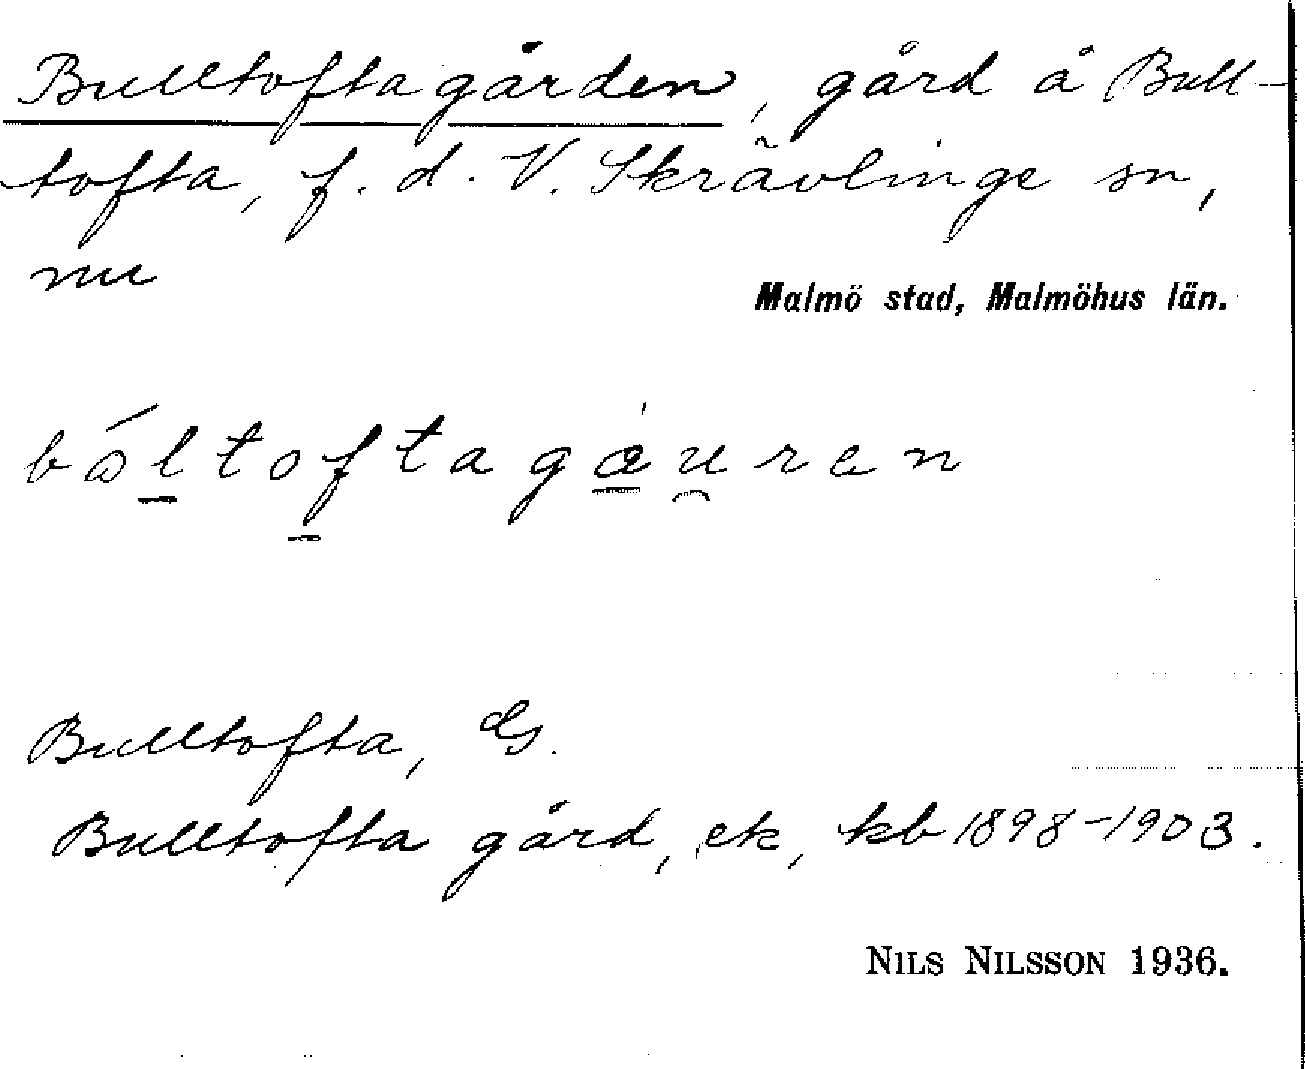 Bulltoftagården, gård å Bull-
tofta, f. d. V. Skrävlinge sn,
nu
Malmö stad, Malmöhus län.
Bulltofta, Gs.
Bulltofta gård, ek, kb 1898-1903.
NILS NILSSON 1936.